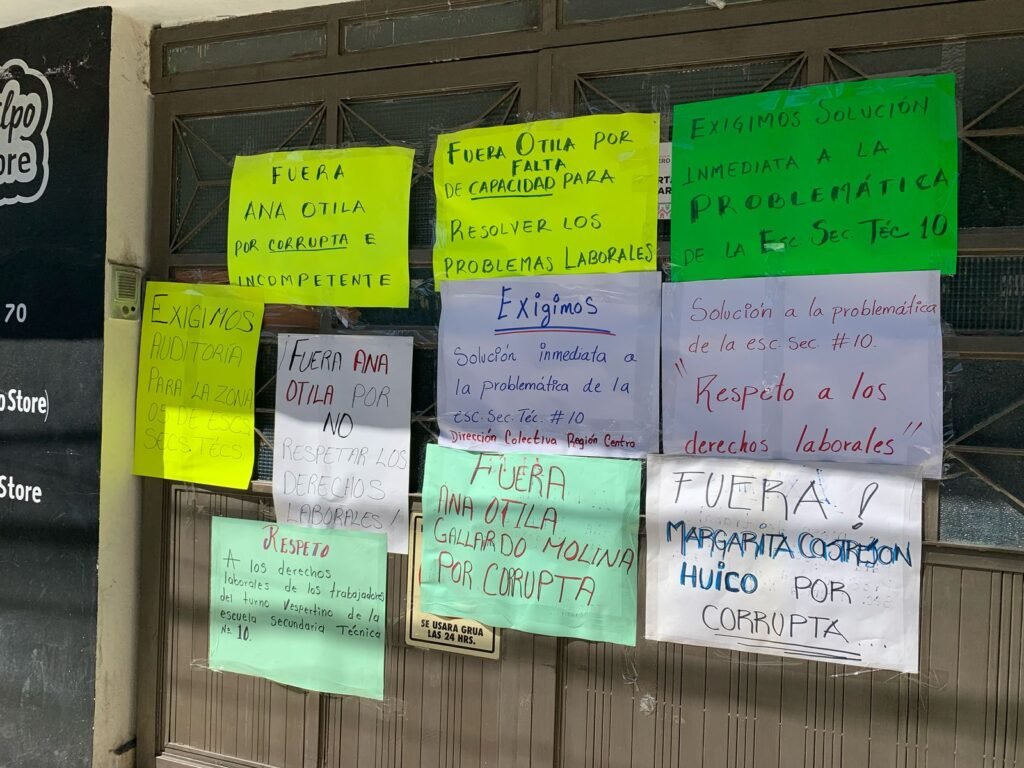 lpo
ore
70
o Store)
Store
FUERA
ANA OTILA
POR CORRUPTA E
INCOMPETENTE
FUERA OTILA POR
FALTA
DE CAPACIDAD PARA
RESOLVER LOS
PROBLEMAS LABORALES
EXIGIMOS SOLUCIÓN
INMEDIATA A LA
PROBLEMÁTICA
DE LA ESC. SEC. TÉC 10
EXIGIMOS
AUDITORÍA
PARA LA ZONA
05 DE ESCS
SECS. TÉCS
¡FUERA ANA
OTILA POR
NO
RESPETAR LOS
DERECHOS
LABORALES!
Exigimos
Solución inmediata a
la problemática de la
esc. Sec. Téc. #10
Dirección Colectiva Región Centro
Solución a la problemática
de la esc. sec. #10.
"Respeto a los
derechos laborales"
RESPETO
A los derechos
laborales de los trabajadores
del turno Vespertino de la
escuela Secundaria Técnica
Nº 10.
FUERA
ANA OTILA
GALLARDO MOLINA
POR CORRUPTA
FUERA!
MARGARITA CASTREJON
HUICO POR
CORRUPTA
SE USARA GRUA
LAS 24 HRS.